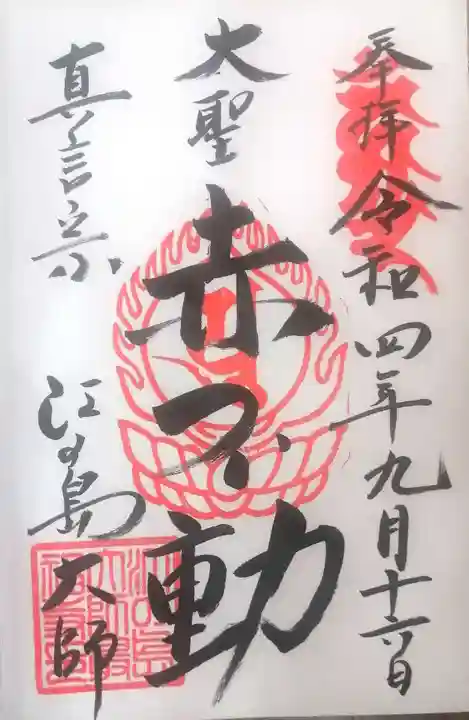 奉拝 令和四年九月十六日
大聖
赤不動
真言宗
江の島
大師